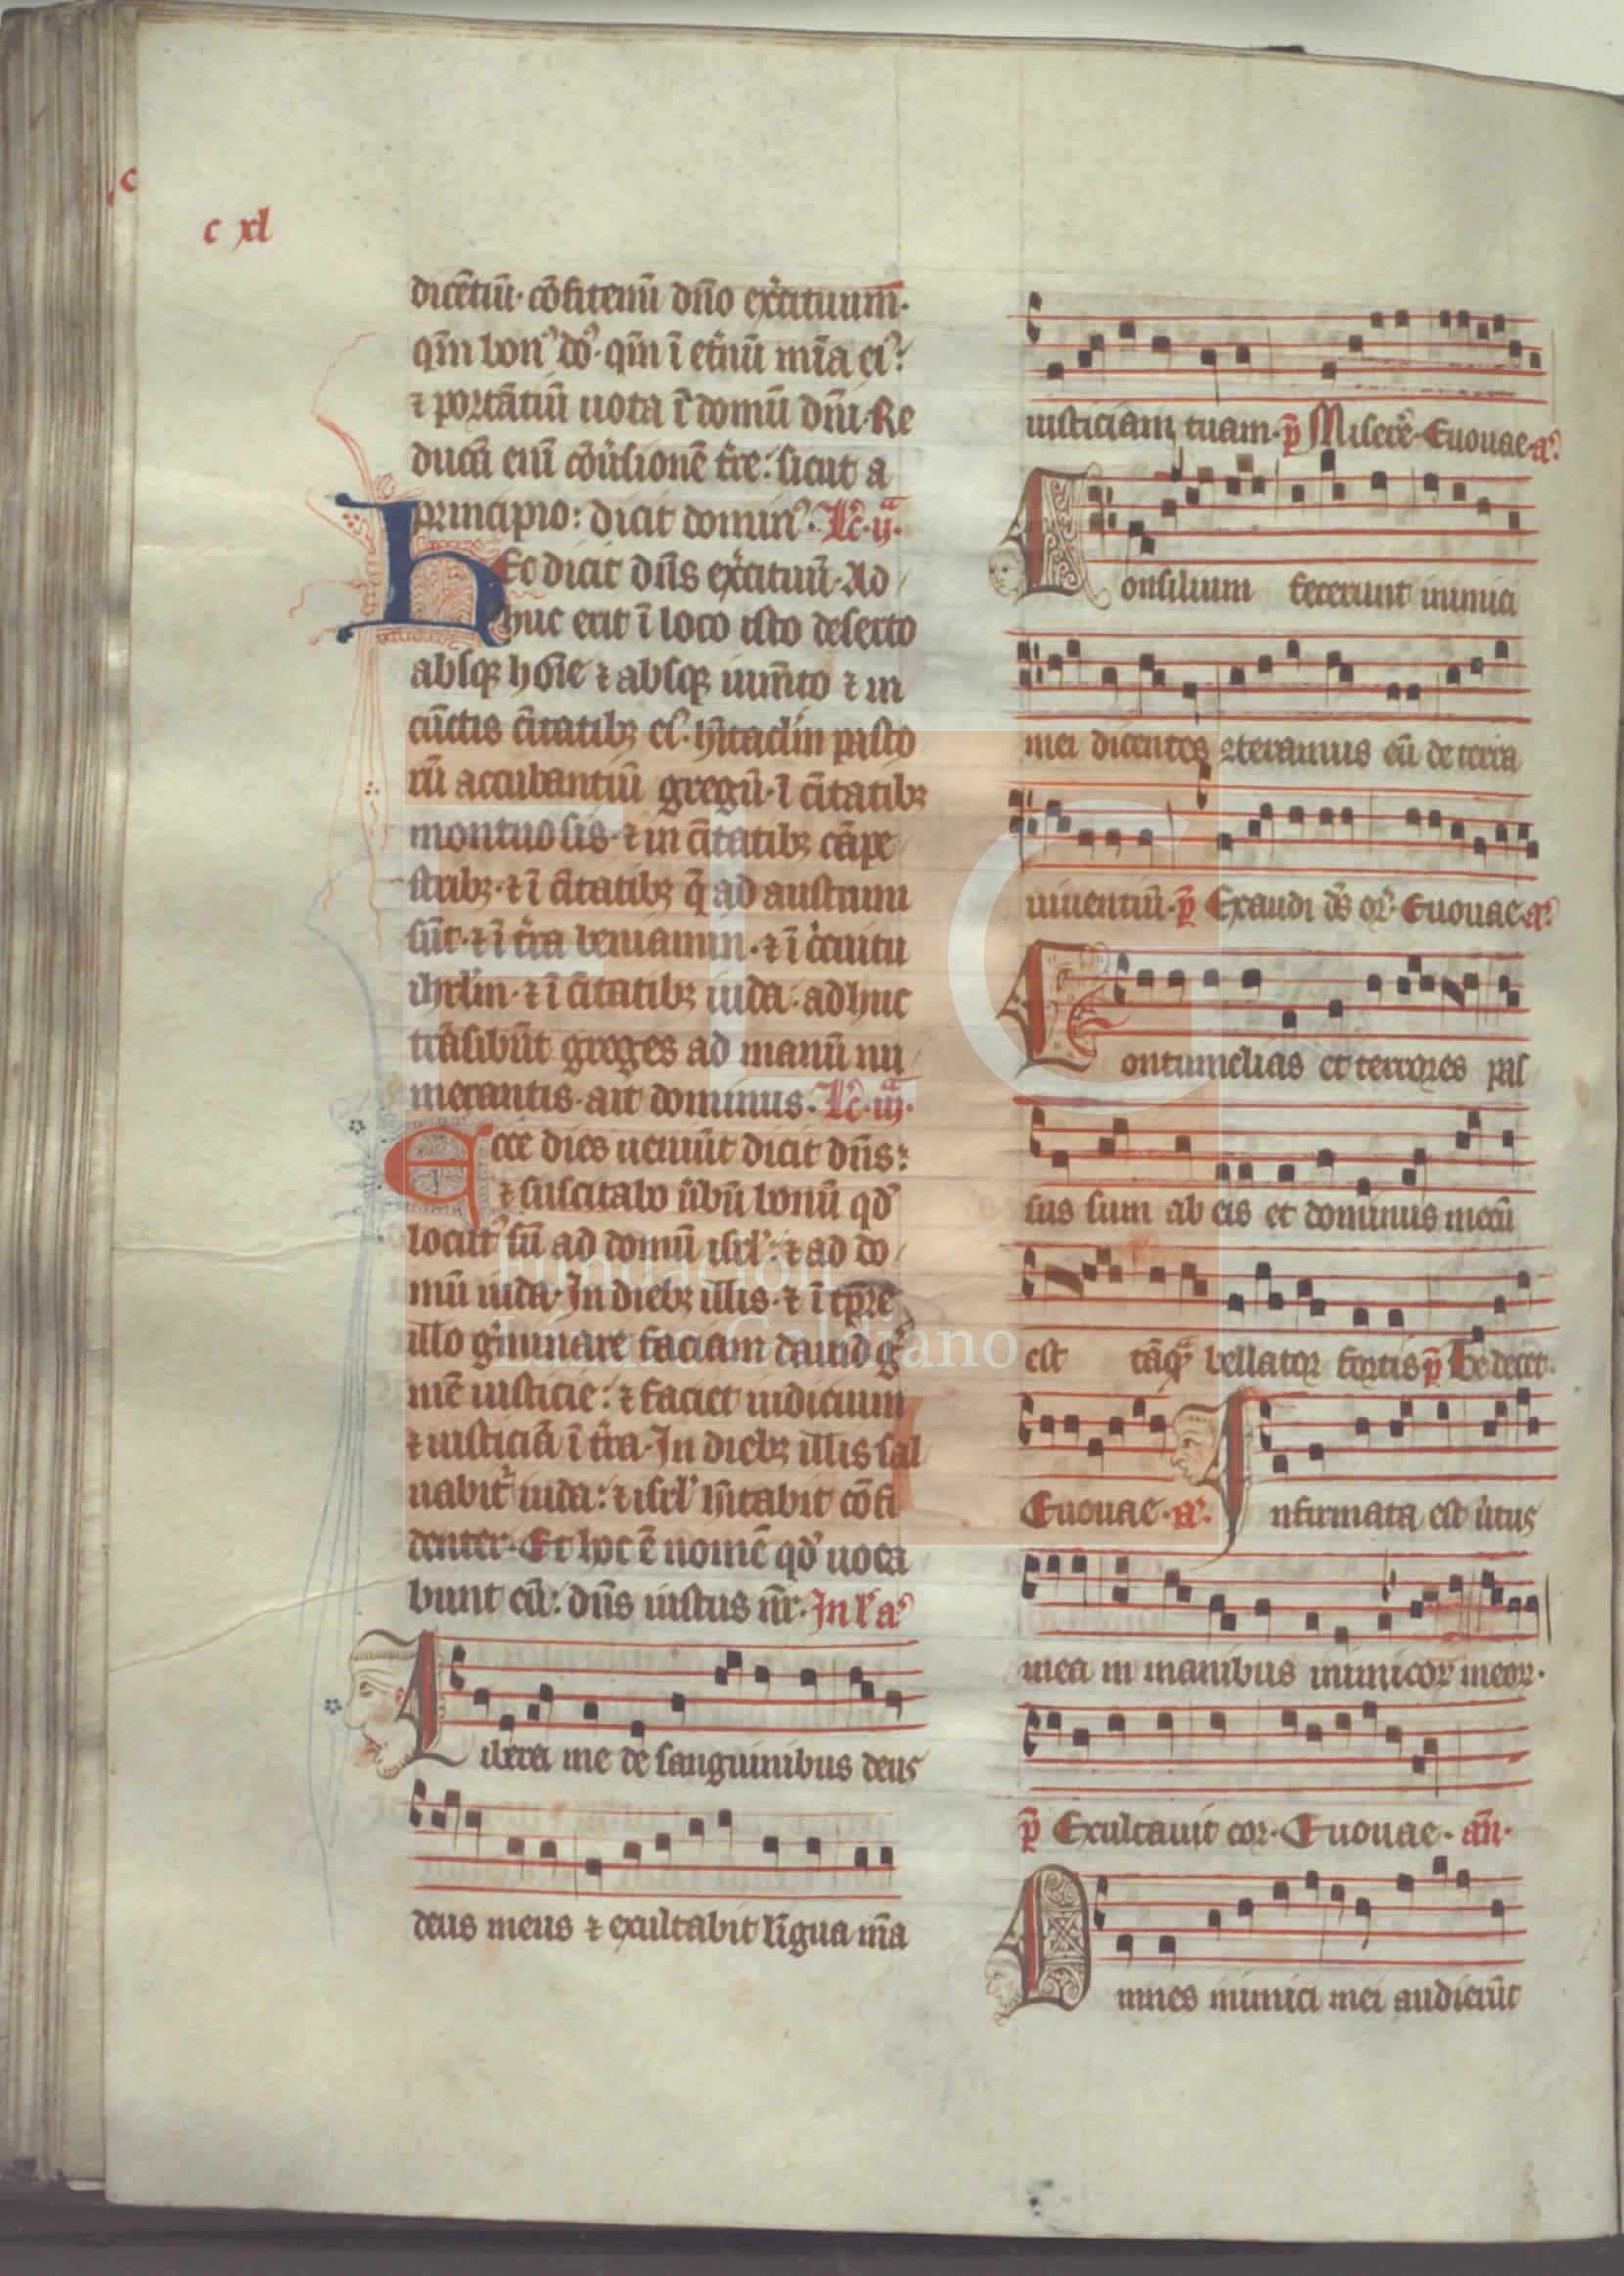 c xl
dicētiū· cōfitemī dn̄o exercituum·
qm̄ bonꝰ dn̄s· qm̄ ī et̄nū mīa eiꝰ:
⁊ portātiū uota ī domū dn̄i· Re
ducā enī cōu̾sionē t̄re: sicut a
principio: dicit dominꝰ· Lc̄· ijᵃ·
hEc dicit dn̄s ex̾cituū· Ad
huc erit ī loco isto deserto
absqꝫ hoīe ⁊ absqꝫ ium̄to ⁊ in
cūctis ciuitatibꝫ eiꝰ· hītaclm̄ pasto
rū accubantiū gregū· ī ciuitatibꝫ
montuosis· ⁊ in ciuitatibꝫ cāpe
stribꝫ· ⁊ ī ciuitatibꝫ q̄ ad austrum
sūt· ⁊ ī t̄ra beniamin· ⁊ ī circuitu
ihrlm̄· ⁊ ī ciuitatibꝫ iuda· adhuc
trāsibūt greges ad manū nu
merantis· ait dominus· Lc̄· iijᵃ·
Ecce dies ueniūt dicit dn̄s:
⁊ suscitabo ūbū bonū qd̾
locutꝰ sū ad domū isrl̾: ⁊ ad do
mū iuda· In diebꝫ illis· ⁊ ī tp̄re
illo g̾minare faciam dauid g̾
mē iusticie: ⁊ faciet iudicium
⁊ iusticiā ī t̄ra· In diebꝫ illis sal
uabit̾ iuda: ⁊ isrl̾ hītabit cōfi
denter· Et hoc ē nomē qd̾ uoca
bunt eū: dn̄s iustus nr̄· In l̾ aꝰ
Libera me de sanguinibus deus
deus meus ⁊ exultabit līgua m̄a
iusticiam tuam· p̄ Miserēre· Euouae· aꝰ
Consilium fecerunt inimici
mei dicentes ꝯteramus eū de terra
uiuentiū· p̄ Exaudi ds̄ or̄· Euouae· aꝰ
Contumelias et terrores pas
sus sum ab eis et dominus mecū
est tāqᵃ bellator fortis p̄ Te decet·
Euouae· aꝰ Infirmata est uirtus
mea in manibus inimicoꝝ meoꝝ·
p̄ Exultauit cor· Euouae· an̄·
Omnes inimici mei audierūt
Fundación
Lázaro Galdiano